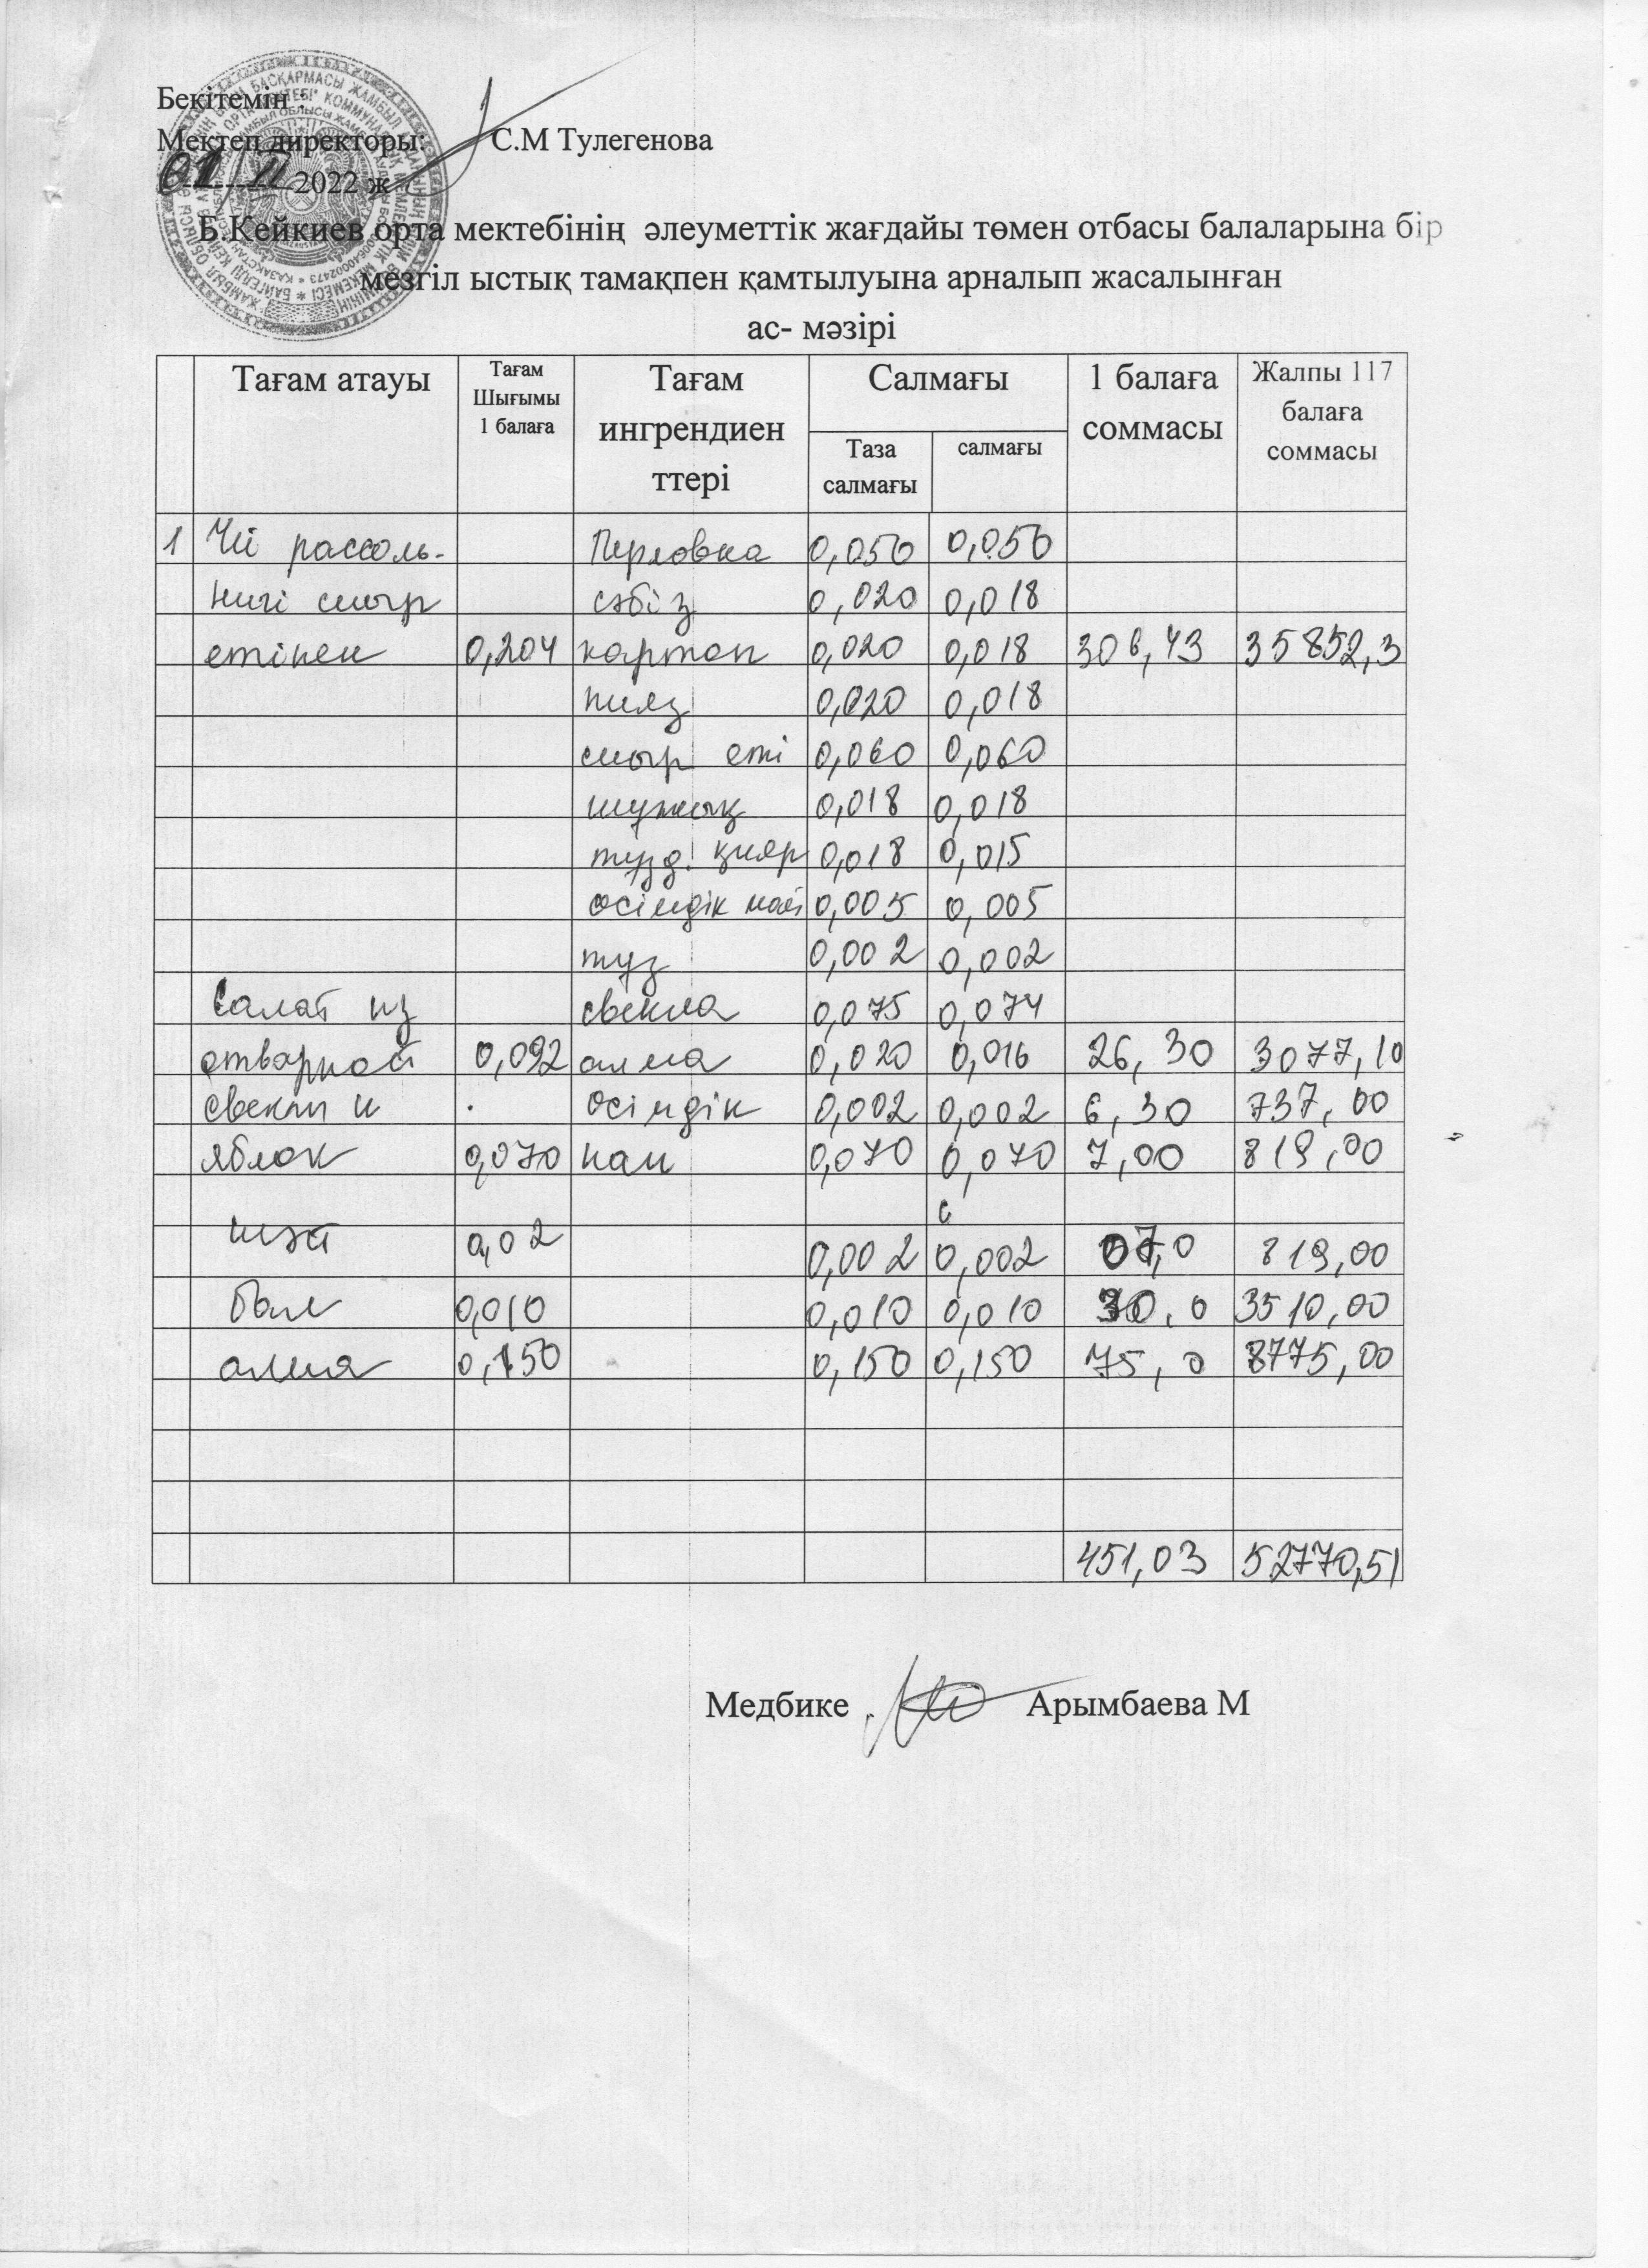 Бекітемін :
Мектеп директоры: С.М Тулегенова
01/11 2022 ж
Б.Кейкиев орта мектебінің әлеуметтік жағдайы төмен отбасы балаларына бір
мезгіл ыстық тамақпен қамтылуына арналып жасалынған
ас- мәзірі
Тағам атауы
Тағам
Шығымы
1 балаға
Тағам
ингрендиен
ттері
Салмағы
Таза
салмағы
салмағы
1 балаға
соммасы
Жалпы 117
балаға
соммасы
1 Үй рассоль- Перловка 0,050 0,050
нигі сиыр сәбіз 0,020 0,018
етінен 0,204 картоп 0,020 0,018 306,43 35852,3
пияз 0,020 0,018
сиыр еті 0,060 0,060
шұжық 0,018 0,018
тұзд. қияр 0,018 0,015
өсімдік май 0,005 0,005
тұз 0,002 0,002
Салат из свекла 0,075 0,074
отварной 0,092 алма 0,020 0,016 26,30 3077,10
свеклы и өсімдік 0,002 0,002 6,30 737,00
яблок 0,070 нан 0,070 0,070 7,00 819,00
шәй 0,02 0,002 0,002 07,0 819,00
бал 0,010 0,010 0,010 30,0 3510,00
алма 0,150 0,150 0,150 75,0 8775,00
451,03 52770,51
Медбике Арымбаева М